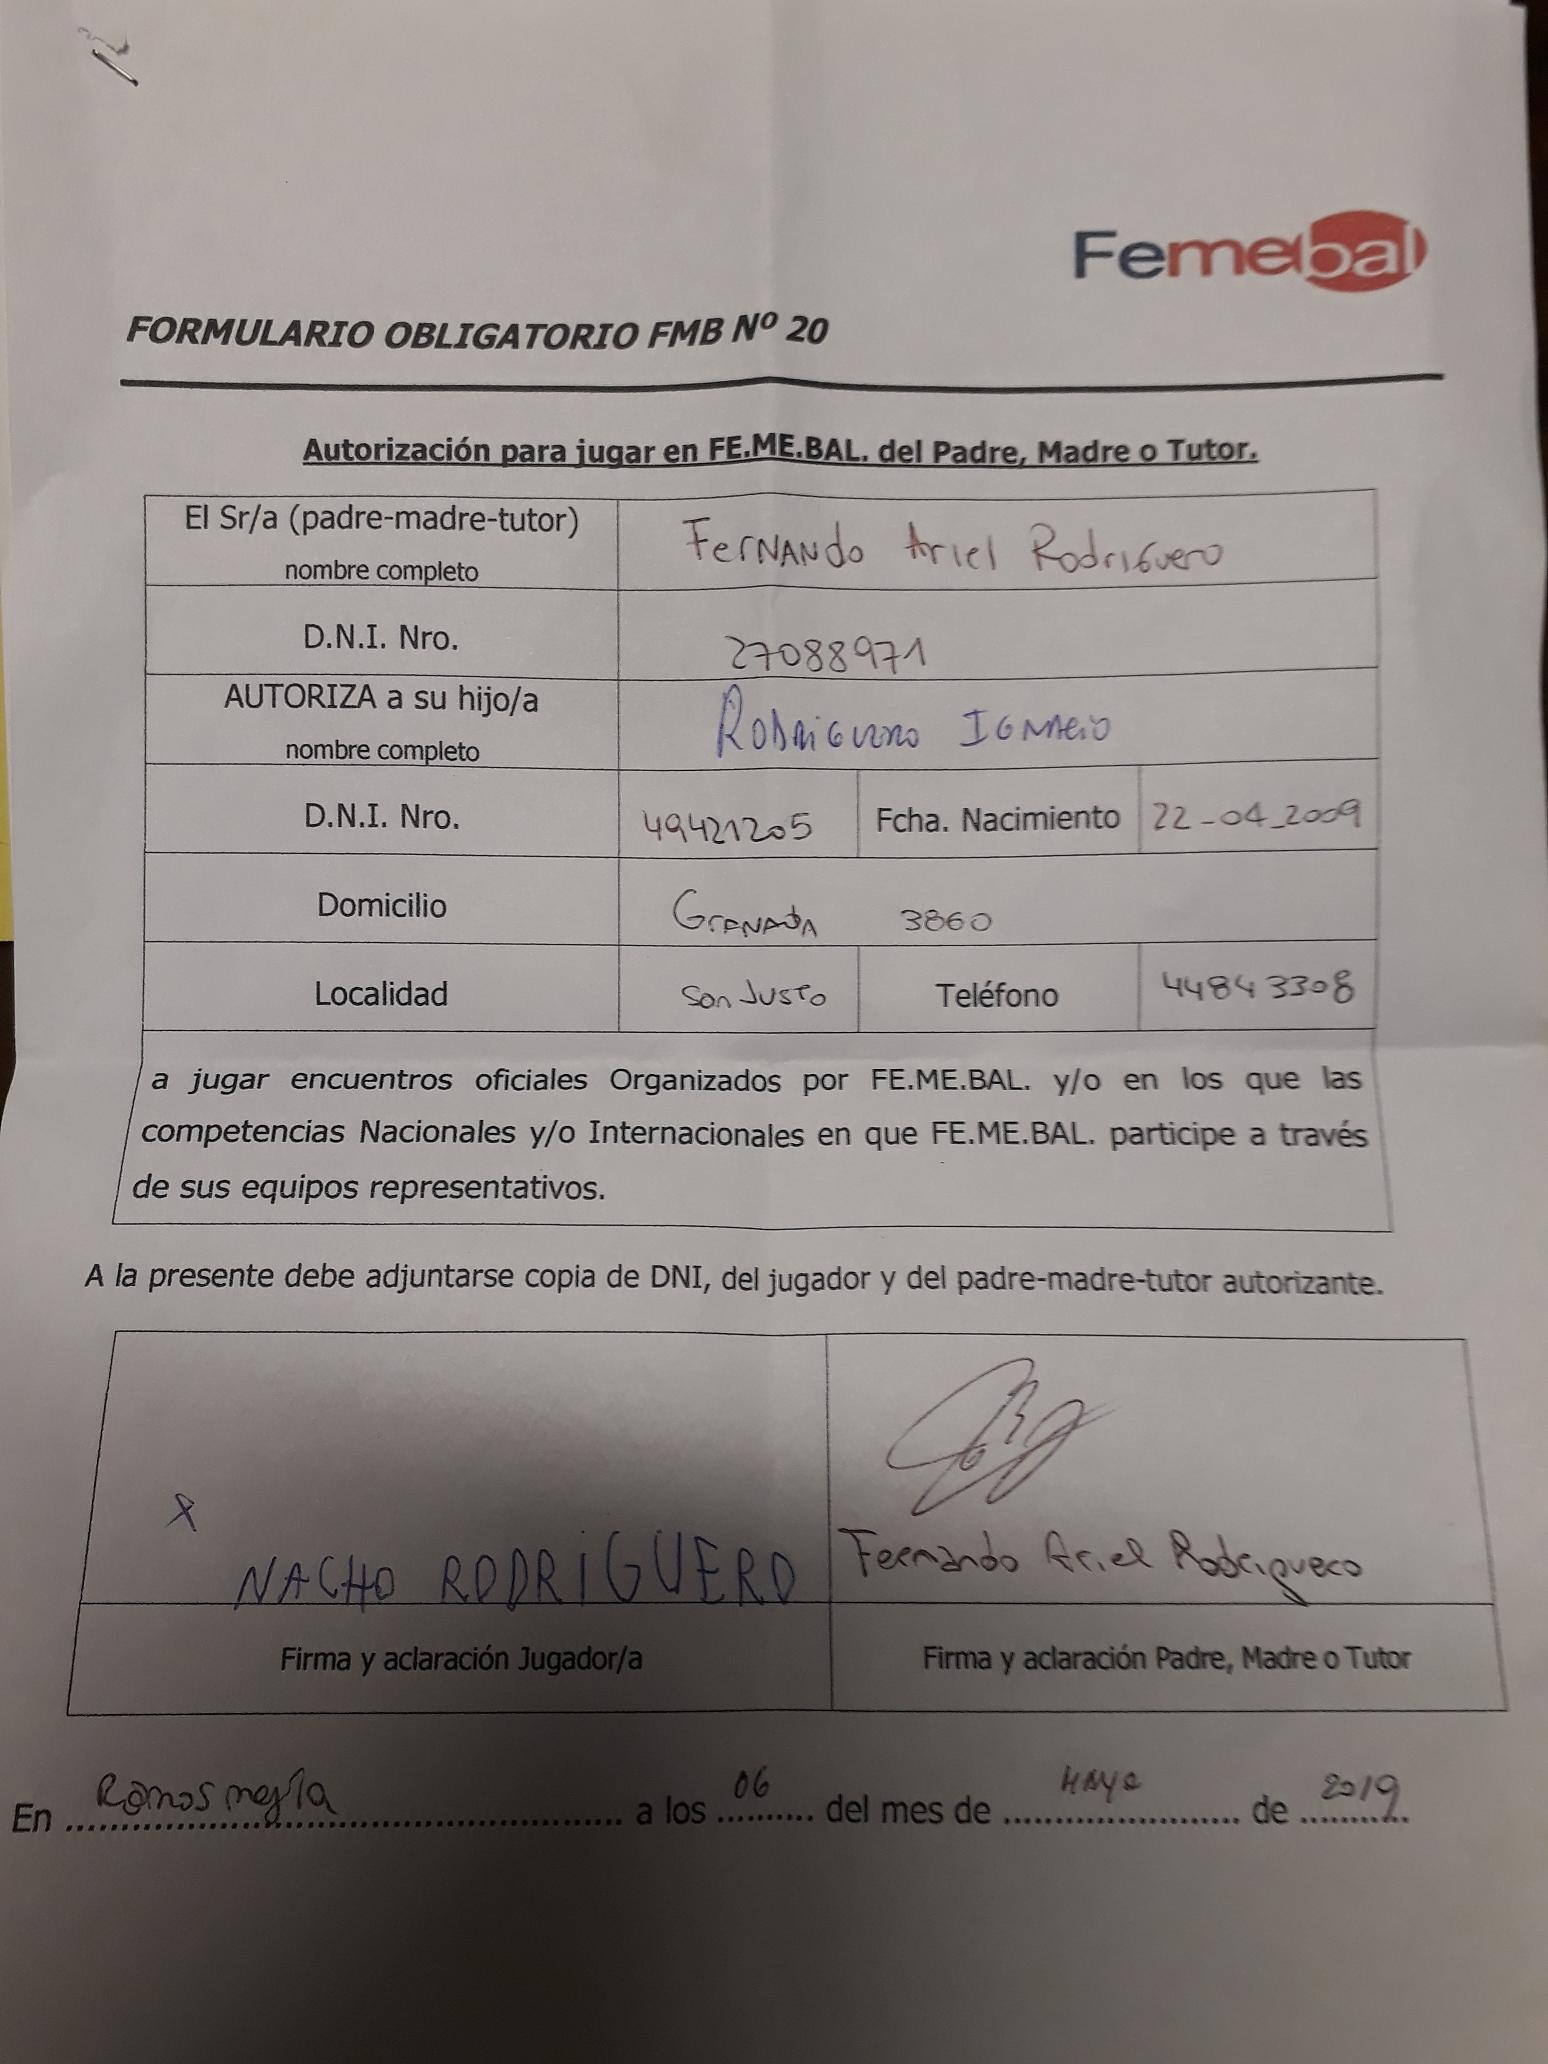 Femebal
FORMULARIO OBLIGATORIO FMB Nº 20
Autorización para jugar en FE.ME.BAL. del Padre, Madre o Tutor.
El Sr/a (padre-madre-tutor)
nombre completo
Fernando Ariel Rodriguero
D.N.I. Nro.
27088971
AUTORIZA a su hijo/a
nombre completo
Rodriguero Ignacio
D.N.I. Nro.
49421205
Fcha. Nacimiento
22-04-2009
Domicilio
Granada 3860
Localidad
San Justo
Teléfono
44843308
a jugar encuentros oficiales Organizados por FE.ME.BAL. y/o en los que las
competencias Nacionales y/o Internacionales en que FE.ME.BAL. participe a través
de sus equipos representativos.
A la presente debe adjuntarse copia de DNI, del jugador y del padre-madre-tutor autorizante.
X
NACHO RODRIGUERO
Fernando Ariel Rodriguero
Firma y aclaración Jugador/a
Firma y aclaración Padre, Madre o Tutor
En Ramos mejía a los 06 del mes de MAYO de 2019